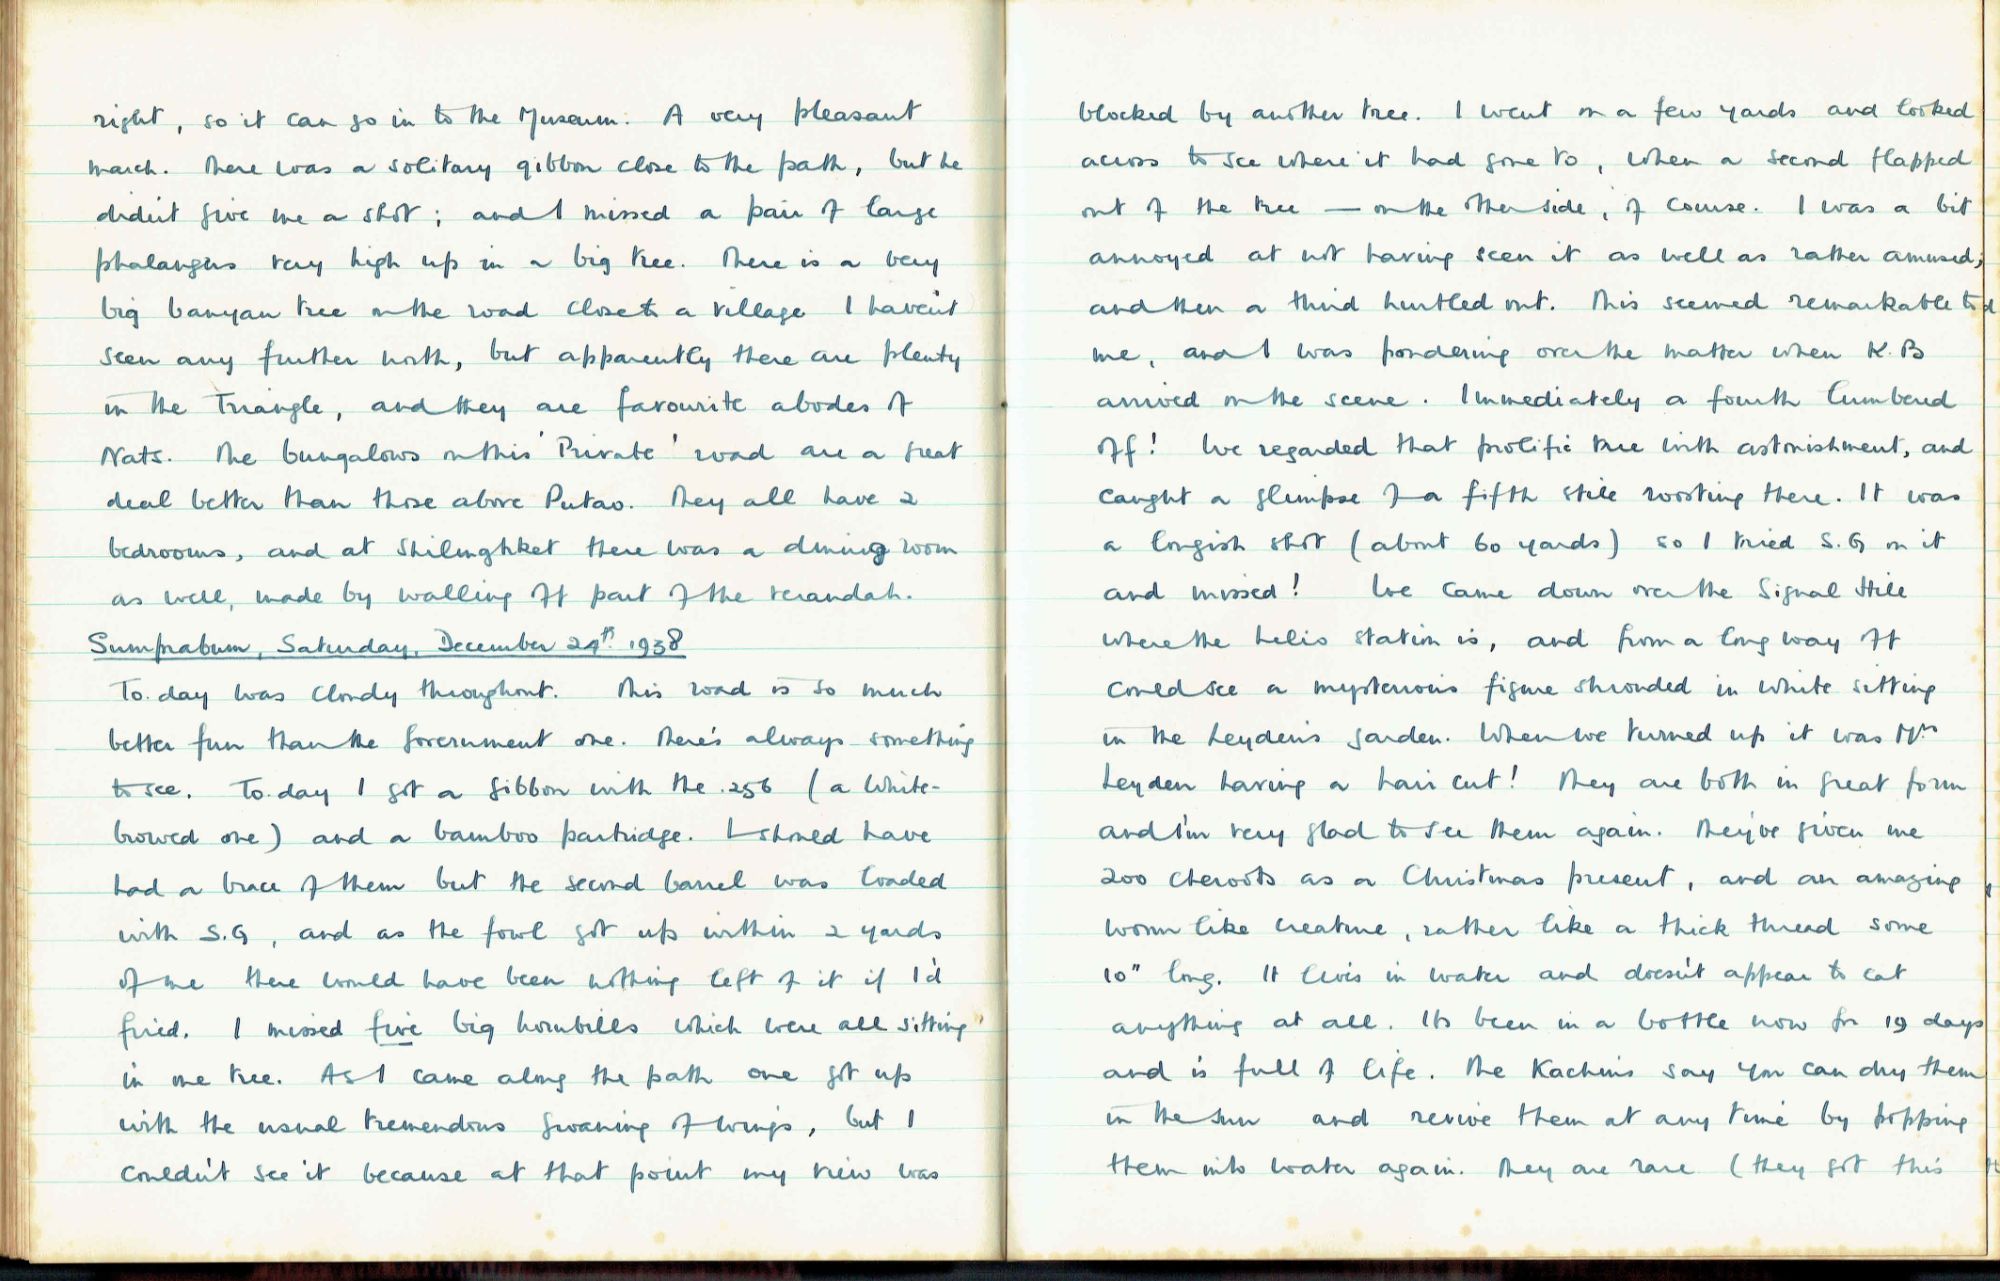 right, so it can go in to the Museum. A very pleasant
march. There was a solitary gibbon close to the path, but he
didn't give me a shot; and I missed a pair of large
phalangers very high up in a big tree. There is a very
big banyan tree on the road close to a village I haven't
seen any further north, but apparently there are plenty
in the Triangle, and they are favourite abodes of
Nats. The bungalows on this 'Private' road are a great
deal better than those above Putao. They all have 2
bedrooms, and at Shilinghket there was a dining room
as well, made by walling off part of the verandah.
Sumprabum, Saturday, December 24th. 1938
To.day was cloudy throughout. This road is so much
better fun than the Government one. There's always something
to see. To.day I got a gibbon with the .256 (a white-
browed one) and a bamboo partridge. I should have
had a brace of them but the second barrel was loaded
with S.G, and as the fowl got up within 2 yards
of me there would have been nothing left of it if I'd
fired. I missed five big hornbills which were all sitting
in one tree. As I came along the path one got up
with the usual tremendous groaning of wings, but I
couldn't see it because at that point my view was
blocked by another tree. I went on a few yards and looked
across to see where it had gone to, when a second flapped
out of the tree — on the other side, of course. I was a bit
annoyed at not having seen it as well as rather amused;
and then a third hurtled out. This seemed remarkable to
me, and I was pondering over the matter when K.B
arrived on the scene. Immediately a fourth lumbered
off! We regarded that prolific tree with astonishment, and
caught a glimpse of a fifth still roosting there. It was
a longish shot (about 60 yards) so I tried S.G on it
and missed! We came down over the Signal Hill
where the helio station is, and from a long way off
could see a mysterious figure shrouded in white sitting
in the Leyden's garden. When we turned up it was Mrs
Leyden having a hair cut! They are both in great form
and I'm very glad to see them again. They've given me
200 cheroots as a Christmas present, and an amazing
worm like creature, rather like a thick thread some
10" long. It lives in water and doesn't appear to eat
anything at all. Its been in a bottle now for 19 days
and is full of life. The Kachins say you can dry them
in the sun and revive them at any time by popping
them into water again. They are rare (they got this